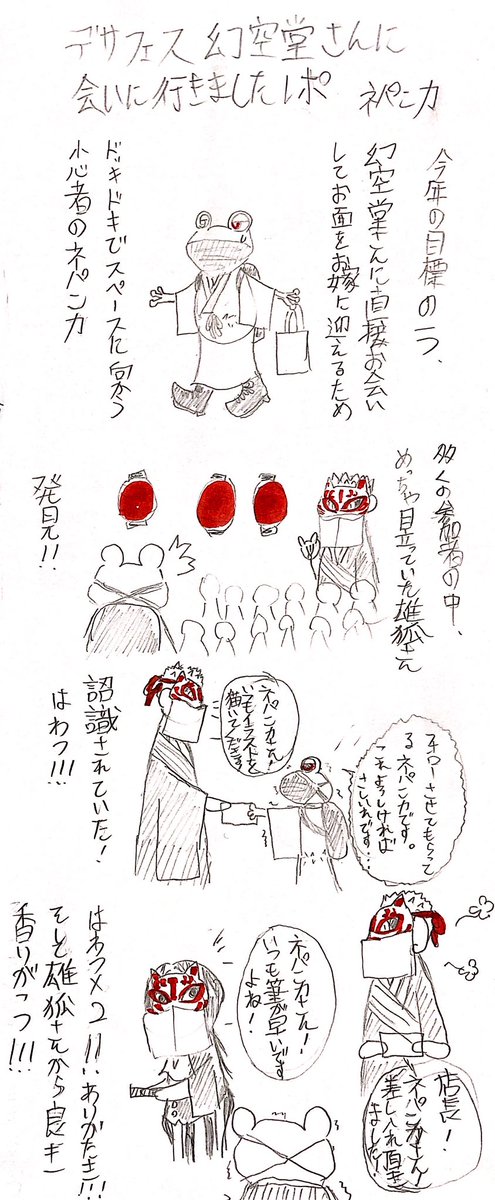 デザフェス幻空堂さんに
会いに行きましたレポ ネパンカ
今年の目標の一つ、
幻空堂さんに直接お会い
してお面をお嫁に迎えるため
ドッキドキでスペースに向かう
小心者のネパンカ
多くの参加者の中、
めっちゃ目立っていた雄狐さん
発見!!
フォローさせてもらって
るネパンカです。
これよろしければ
さしいれです…
ネパンカさん!
いつもイラストを
描いてくださり
認識されていた!
はわっ!!!
店長!
ネパンカさん!
差し入れ頂き
ました!
ネパンカさん!
いつも筆が早いです
よね!
はわっ×2!!ありがたき!!!
そして雄狐さんから良き
香りがっっ!!!